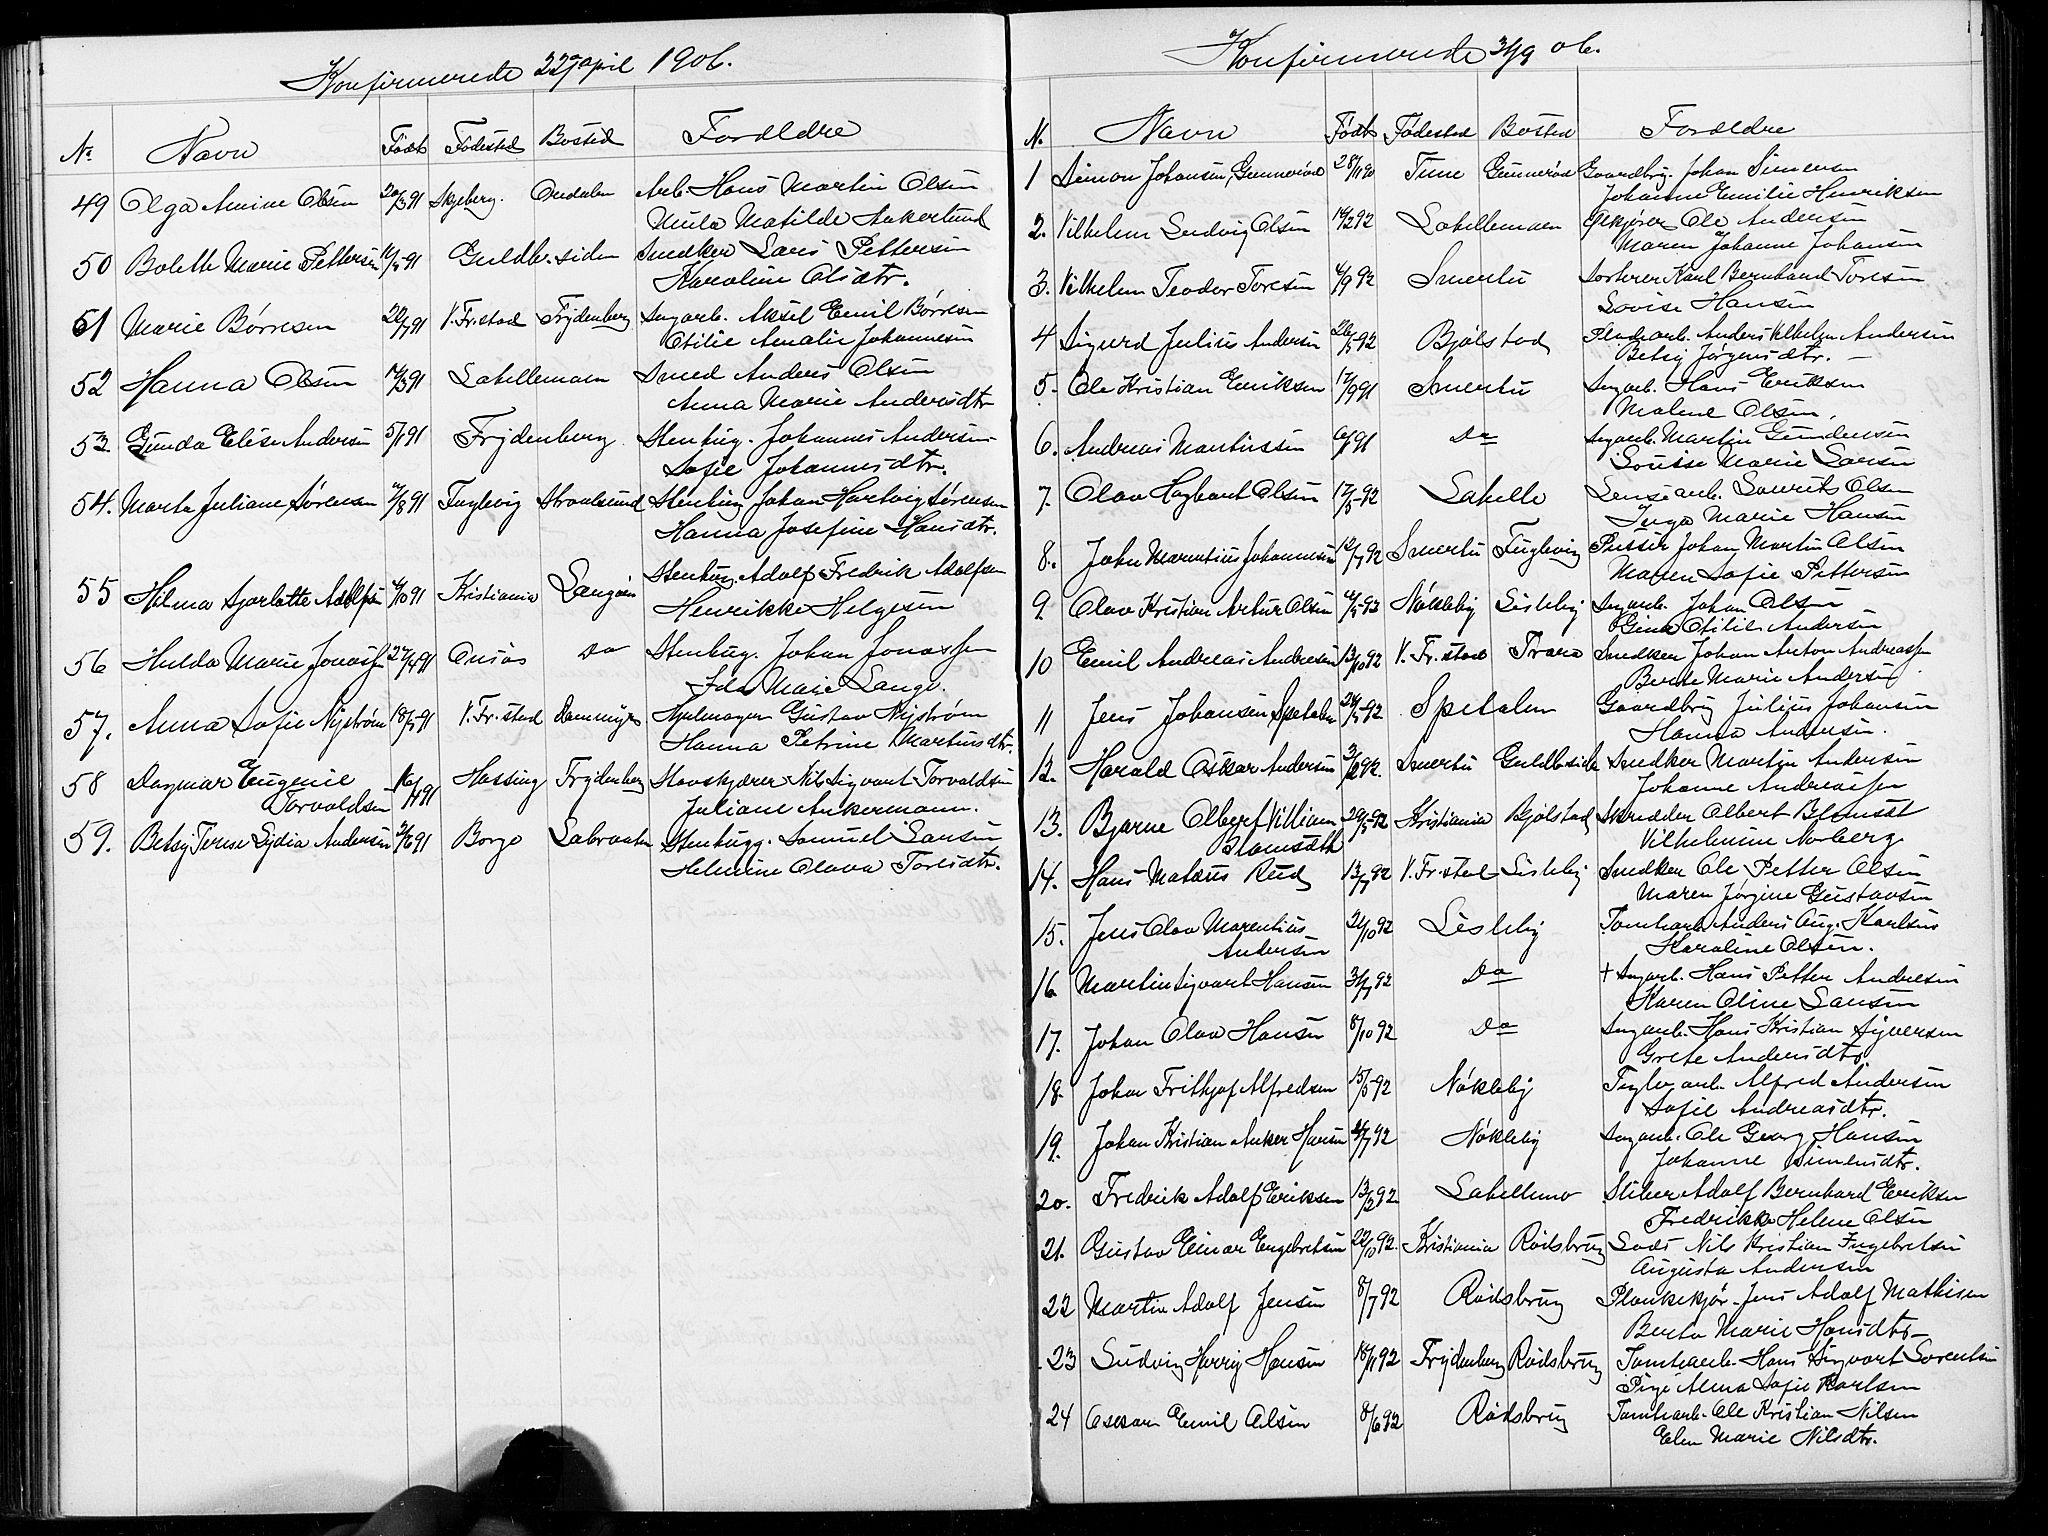 Konfirmerede 22 april 1906.
No Navn Født Fødested Bosted Forældre
49 Olga Amine Olsen 20/3 91 Skjeberg. Onsdalen Arb. Hans Martin Olsen
Mula Matilde Ankerlund
50 Bolette Marie Pettersen 16/5 91 Guldb.siden Snedker Lars Pettersen
Karoline Olsdtr.
51 Marie Børresen 20/7 91 V.Fr.stad Frydenberg Sagarb. Aksel Emil Børresen
Otilie Amalie Johannesen
52 Hanna Olsen 17/3 91 Labellemoen Smed Anders Olsen
Anna Marie Andersdtr
53 Gunda Elise Andersen 5/1 91 Frydenberg. Stenhug. Johannes Andersen
Sofie Johannesdtr.
54. Marta Juliane Sørensen 7/8 91 Fuglevig Straalsund Stenhug Johan Hartvig Sørensen
Hanna Josefine Hansdtr.
55 Hilma Sjarlotte Adolfsen 4/10 91 Kristiania Langøen Stenhug. Adolf Fredrik Adolfsen
Henrikke Helgesen
56 Hulda Marie Jonassen 27/4 91 Onsøs Do Stenhug. Johan Jonassen
Ida Marie Lange.
57. Anna Sofie Nystrøm 18/5 91 V.Fr.stad Dammyr Hjulmager Gustav Nystrøm
Hanna Petrine Martinsdtr.
58 Dagmar Eugenie 16/4 91 Hassing Frydenberg Skovskjærer Nils Sigvart Torvaldsen
Torvaldsen Juliane Ankermann.
59. Betsy Terese Lydia Andersen 2/6 91 Borge Labraaten Stenhugg. Samuel Larsen
Helmine Olava Toresdtr.
Konfirmerede 3/9 06.
N. Navn Født Fødested Bosted Forældre
1 Simon Johansen, Gunnerød 28/11 90 Tune Gunnerød Gaardbrg. Johan Simensen
Johanne Emilie Henriksen
2. Vilhelm Ludvig Olsen 14/2 92 Labellemoen Ølkjører Ole Andersen
Maren Johanne Johansen
3. Vilhelm Teodor Toresen 4/9 92 Smertu Sorterer Karl Bernhard Toresen
Lovise Hansen
4 Sigurd Julius Andersen 26/5 92 Bjølstad Pladsarb. Anders Vilhelm Andersen
Betsy Jørgensdtr.
5. Ole Kristian Eriksen 17/9 91 Smertu Sagarb. Hans Eriksen
Maline Olsen.
6. Andreas Martinssen 91 Do Sagarb. Martin Gundersen
Lovise Marie Larsen
7. Olav Hagbart Olsen 17/5 92 Labelle Lensearb. Laurits Olsen
Inga Marie Hansen
8. John Marentius Johannesen 12/7 92 Smertu Fuglevig Pusser Johan Martin Olsen
Maren Sofie Pettersen
9. Olav Kristian Artur Olsen 4/5 92 Nøkleby Lisleby Sagarb. Johan Olsen
Gina Otilie Andersen
10 Emil Andreas Andreasen 13/10 92 V.Fr.stad Trara Snedker Johan Anton Andreassen
Berte Marie Andersen.
11 Jens Johansen, Spetalen 24/5 92 Spetalen Gaardbrg Julius Johansen
Hanna Andersen.
12. Harald Oskar Andersen 3/2 92. Smertu Guldb.side Snedker Martin Andersen
Johanne Andreassen
13. Bjarne Albert Villiam 29/5 92 Kristiania Bjølstad Skrædder Albert Blomsdt
Blomsdth Vilhelmine Norberg
14. Hans Mataus Rud 13/7 92 V.Fr.stad Lisleby Snedker Ole Petter Olsen
Maren Jørgine Gustavsen
15. Jens Olav Marentius 24/10 92 Lisleby Tomtearb Anders Aug. Karlsen
Andersen Karoline Olsen.
16. Martin Sigvart Hansen 31/7 92 Do + Sagarb. Hans Petter Andresen
Karen Oline Larsen
17. Johan Olav Hansen 8/10 92 Do Sagarb. Hans Kristian Syversen
Grete Andersdtr.
18. Johan Frithjof Alfredsen 15/5 92 Nøkleby Teglv.arb. Alfred Andersen
Sofie Andreasdtr.
19. Johan Kristian Anker Hansen 4/7 92 Nøkleby Sagarb. Ole Georg Hansen
Johanne Simensdtr.
20. Fredrik Adolf Eriksen 13/2 92 Labellmo Stiber Adolf Bernhard Eriksen
Fredrikke Helene Olsen
21. Gustav Einar Engebretsen 22/10 92. Kristiania Rødsbrug Lods Nils Kristian Engebretsen
Augusta Andersen
22 Martin Adolf Jensen 8/7 92 Rødsbrug Plankekjør. Jens Adolf Mathisen
Berta Marie Hansdtr
23 Ludvig Harry Hansen 18/11 92 Frydenberg Rødsbrug Tomtearb. Hans Sigvart Sorentsen
Pige Alma Sofie Karlsen
24 Osscar Emil Olsen 8/6 92 Rødsbrug Tomtearb. Ole Kristian Nilsen
Elen Marie Nilsdtr.